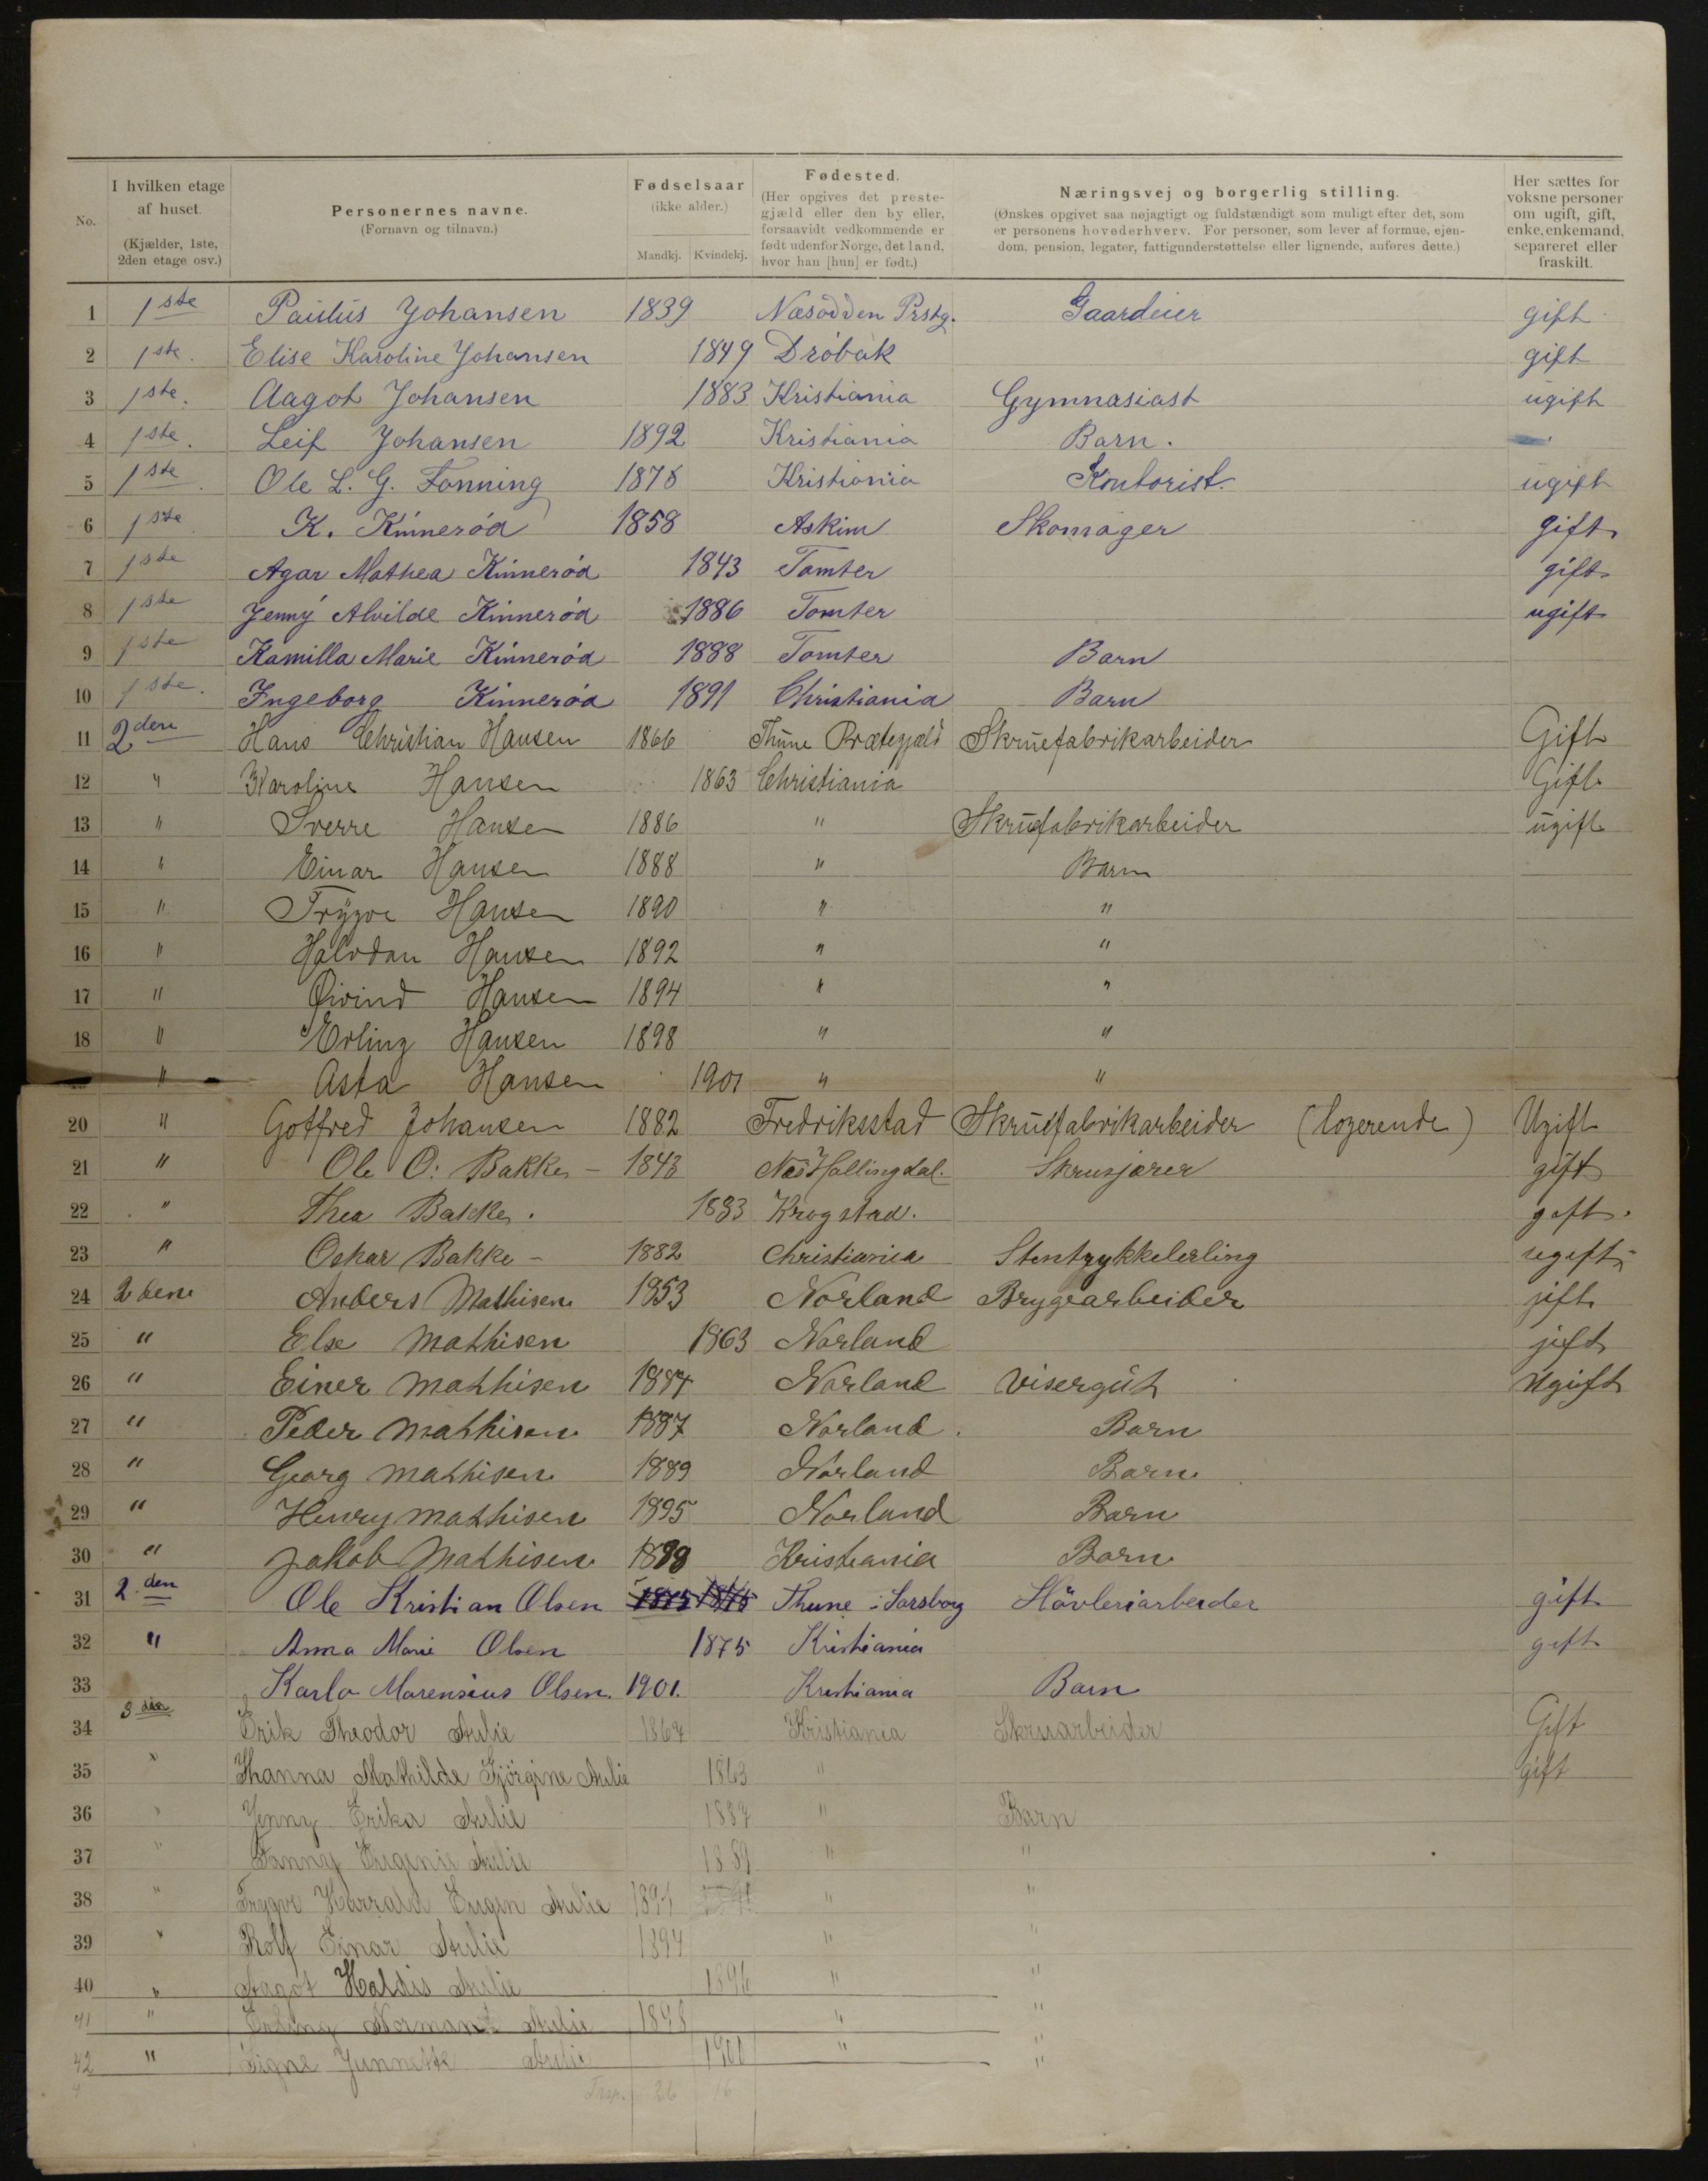 No. | I hvilken etage af huset. (Kjælder, 1ste, 2den etage osv.) | Personernes navne. (Fornavn og tilnavn.) | Fødselsaar (ikke alder.) Mandkj. Kvindekj. | Fødested. (Her opgives det prestegjæld eller den by eller, forsaavidt vedkommende er født udenfor Norge, det land, hvor han [hun] er født.) | Næringsvej og borgerlig stilling. (Ønskes opgivet saa nøjagtigt og fuldstændigt som muligt efter det, som er personens hovederhverv. For personer, som lever af formue, ejendom, pension, legater, fattigunderstøttelse eller lignende, anføres dette.) | Her sættes for voksne personer om ugift, gift, enke, enkemand, separeret eller fraskilt.
1 1ste Paulus Johansen 1839 Næsodden Prstg. Gaardeier gift
2 1ste. Elise Karoline Johansen 1849 Dröbak gift
3 1ste. Aagot Johansen 1883 Kristiania Gymnasiast ugift
4 1ste. Leif Johansen 1892 Kristiania Barn.
5 1ste. Ole L. G. Fonning Kristiania Kontorist. ugift
6 1ste K. Kinnerød 1858 Askim Skomager gift
7 1ste Agar Mathea Kinnerød 1843 Tomter gift
8 1ste Jenny Alvilde Kinnerød 1886 Tomter ugift
9 1ste Kamilla Marie Kinnerød 1888 Tomter Barn
10 1ste. Ingeborg Kinnerød 1891 Christiania Barn
11 2den Hans Christian Hansen 1866 Thune Prætegjæld Skruefabrikarbeider Gift
12 " Karoline Hansen 1863 Christiania Gift
13 " Sverre Hansen 1886 " Skruefabrikarbeider ugift
14 " Einar Hansen 1888 " Barn
15 " Trygve Hansen 1890 " "
16 " Halvdan Hansen 1892 " "
17 " Øivind Hansen 1894 " "
18 " Erling Hansen 1898 " "
" Asta Hansen 1901 " "
20 " Gotfred Johansen 1882 Fredriksstad Skruefabrikarbeider (logerende) Ugift
21 " Ole O. Bakke - 1843 Næs Hallingdal. Skrusjærer gift
22 " Thea Bakke. Krogstad. geft.
23 " Oskar Bakke - 1882 Christiania Stentrykkelerling ugeft
24 2den Anders Mathisen 1853 Norland Brygearbeider jift
25 " Else Mathisen 1863 Norland jift
26 " Einer Mathisen Norland visergut Ugift
27 " Peder Mathisen 1887 Norland. Barn
28 " Georg Mathisen 1889 Norland Barn
29 " Henry Mathisen 1895 Norland Barn
30 " Jakob Mathisen Kristiania Barn
31 2.den Ole Kristian Olsen 1875 Thune i Sarsborg Hövleriarbeider gift
32 " Anna Marie Olsen 1875 Kristiania geft
33 Karlo Marensius Olsen. 1901. Kristiania Barn
34 3die Erik Theodor Aulie Kristiania Skruarbeider Gift
35 " Hanna Mathilde Gjörgine Aulie 1863 " gift
36 " Jenny Erika Aulie 1887 " Barn
37 " Fanny Eugenie Aulie 1889 " "
38 " Trygve Harrald Eugen Aulie 1891 " "
39 " Rolf Einar Aulie 1894 " "
40 " Aagot Haldis Aulie 1896 " "
41 " Erling Normann Aulie 1898 " "
42 " Signe Junnette Aulie 1901 " "
26 16